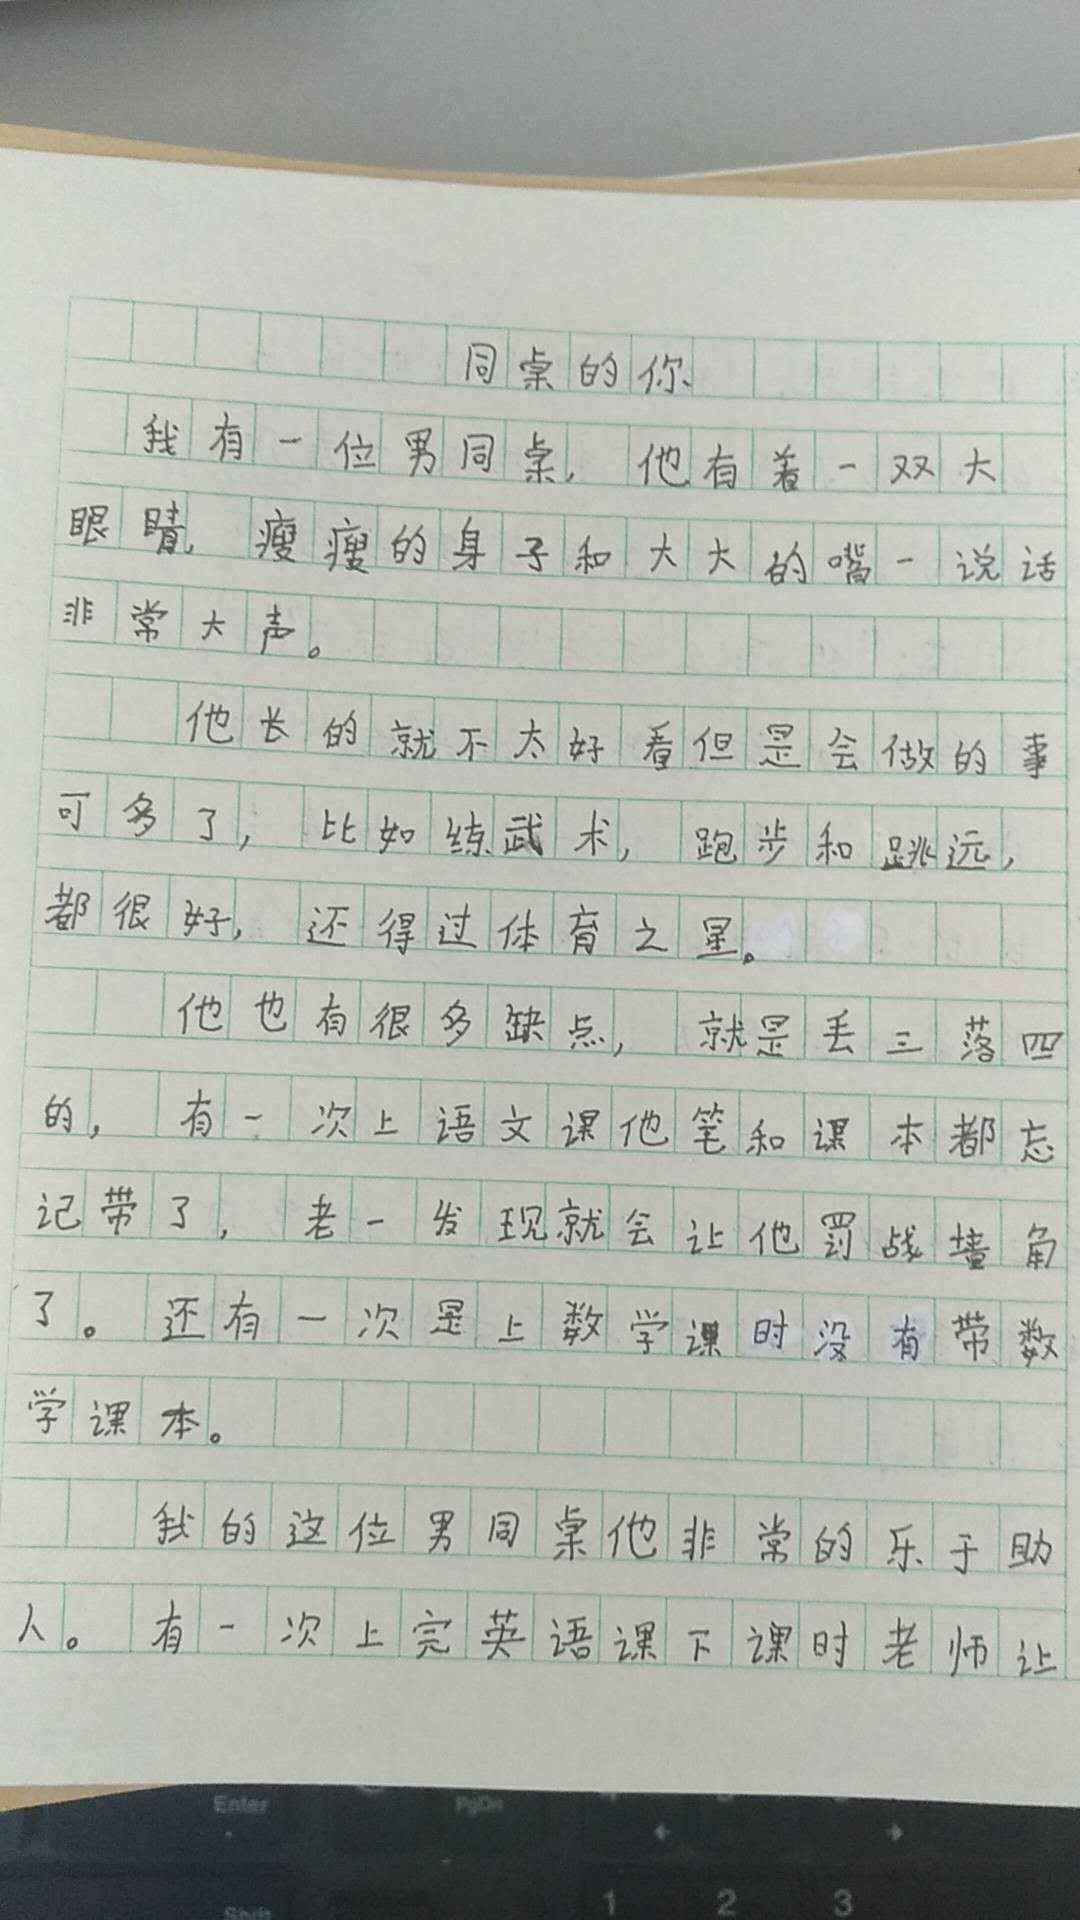 同桌的你
我有一位男同桌，他有着一双大
眼睛，瘦瘦的身子和大大的嘴一说话
非常大声。
他长的就不太好看但是会做的事
可多了，比如练武术，跑步和跳远，
都很好，还得过体育之星。
他也有很多缺点，就是丢三落四
的，有一次上语文课他笔和课本都忘
记带了，老一发现就会让他罚战墙角
了。还有一次是上数学课时没有带数
学课本。
我的这位男同桌他非常的乐于助
人。有一次上完英语课下课时老师让
Enter
PgDn
Shift
1 2 3